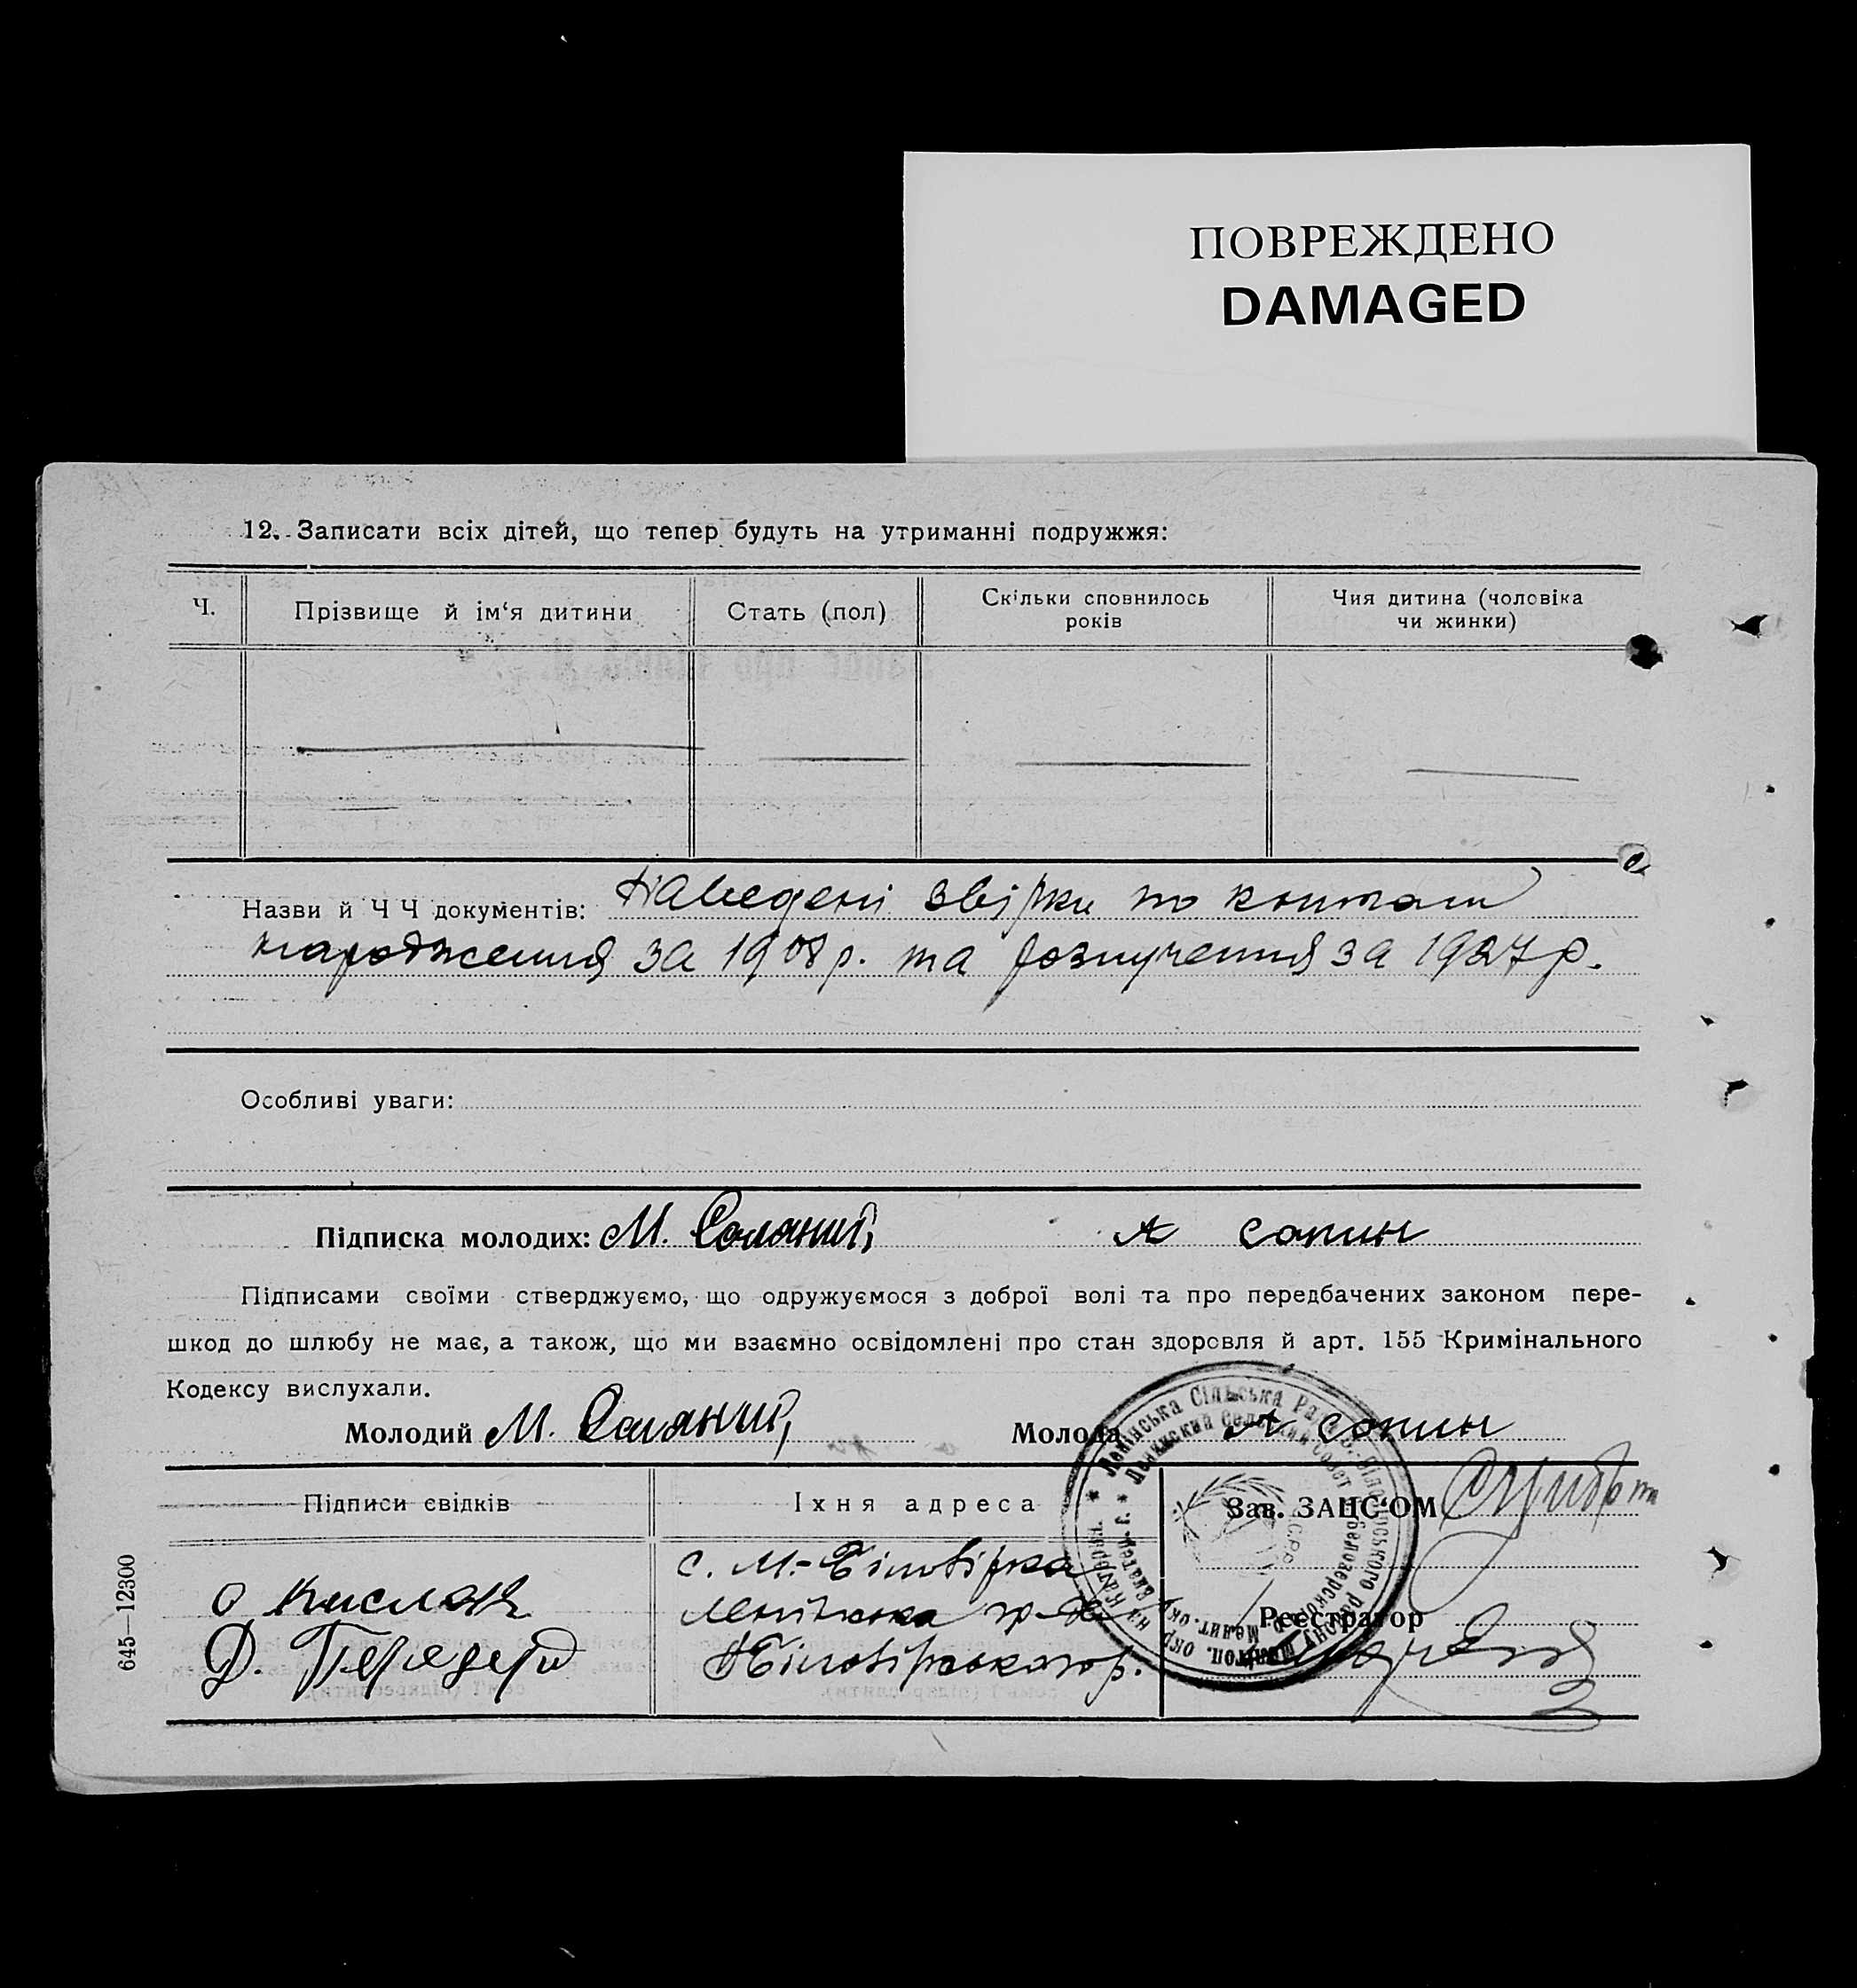 ПОВРЕЖДЕНО
DAMAGED
12. Записати всіх дітей, що тепер будуть на утриманні подружжя:
Ч.
Прізвище й ім'я дитини
Стать (пол)
Скільки сповнилось
років
Чия дитина (чоловіка
чи жинки)
Назви й Ч Ч документів: Наведені звірки по книгам
народження за 1908 р. та розлучення за 1927 р.
Особливі уваги:
Підписка молодих: М. А сопин
Підписами своїми стверджуємо, що одружуємося з доброї волі та про передбачених законом пере-
шкод до шлюбу не має, а також, що ми взаємно освідомлені про стан здоровля й арт. 155 Кримінального
Кодексу вислухали.
Молодий М. Молода А сопин
Підписи свідків
Їхня адреса
Зав. ЗАГС'ОМ
О Кисляк
Д. Передерій
с. М.-Білозірка
Ленінська
Білозірського р.
Реєстратор
Ленінська Сільська Рада
Ленинский Сельский Совет
645—12300